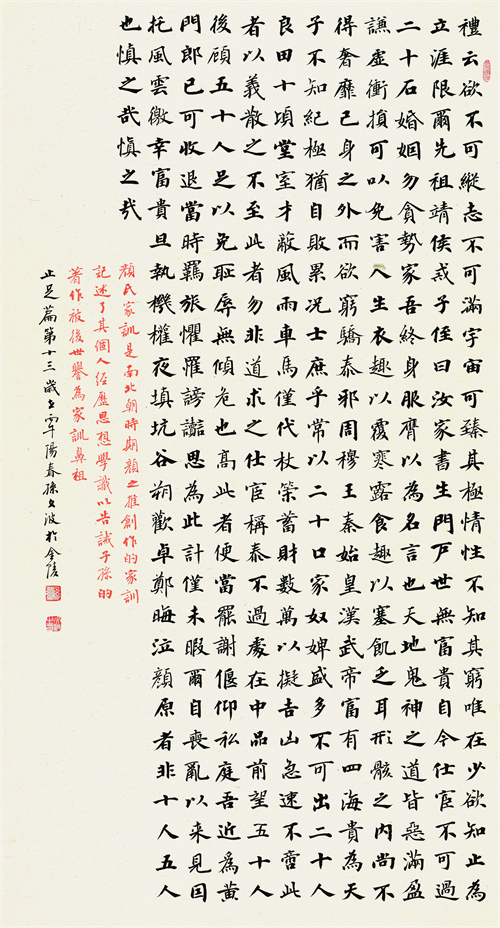 禮云欲不可縱志不可滿宇宙可臻其極情性不知其窮唯在少欲知止為
立涯限爾先祖靖侯戒子侄曰汝家書生門戶世無富貴自今仕宦不可過
二十石婚姻勿貪勢家吾終身服膺以為名言也天地鬼神之道皆惡滿盈
謙虛衝損可以免害人生衣趣以覆寒露食趣以塞飢乏耳形骸之內尚不
得奢靡己身之外而欲窮驕泰邪周穆王秦始皇漢武帝富有四海貴為天
子不知紀極猶自敗累況士庶乎常以二十口家奴婢盛多不可出二十人
良田十頃堂室才蔽風雨車馬僅代杖策蓄財數萬以擬吉凶急速不啻此
者以義散之不至此者勿非道求之仕宦稱泰不過處在中品前望五十人
後顧五十人足以免恥辱無傾危也高此者便當罷謝偃仰私庭吾近為黃
門郎已可收退當時羈旅懼罹謗讟思為此計僅未暇爾自喪亂以來見因
托風雲徼幸富貴旦執機權夜填坑谷朔歡卓鄭晦泣顏原者非十人五人
也慎之哉慎之哉
顏氏家訓是南北朝時期顏之推創作的家訓
記述了其個人經歷思想學識以告誡子孫的
著作被後世譽為家訓鼻祖
止足篇第十三歲在陽春孫文波於金陵